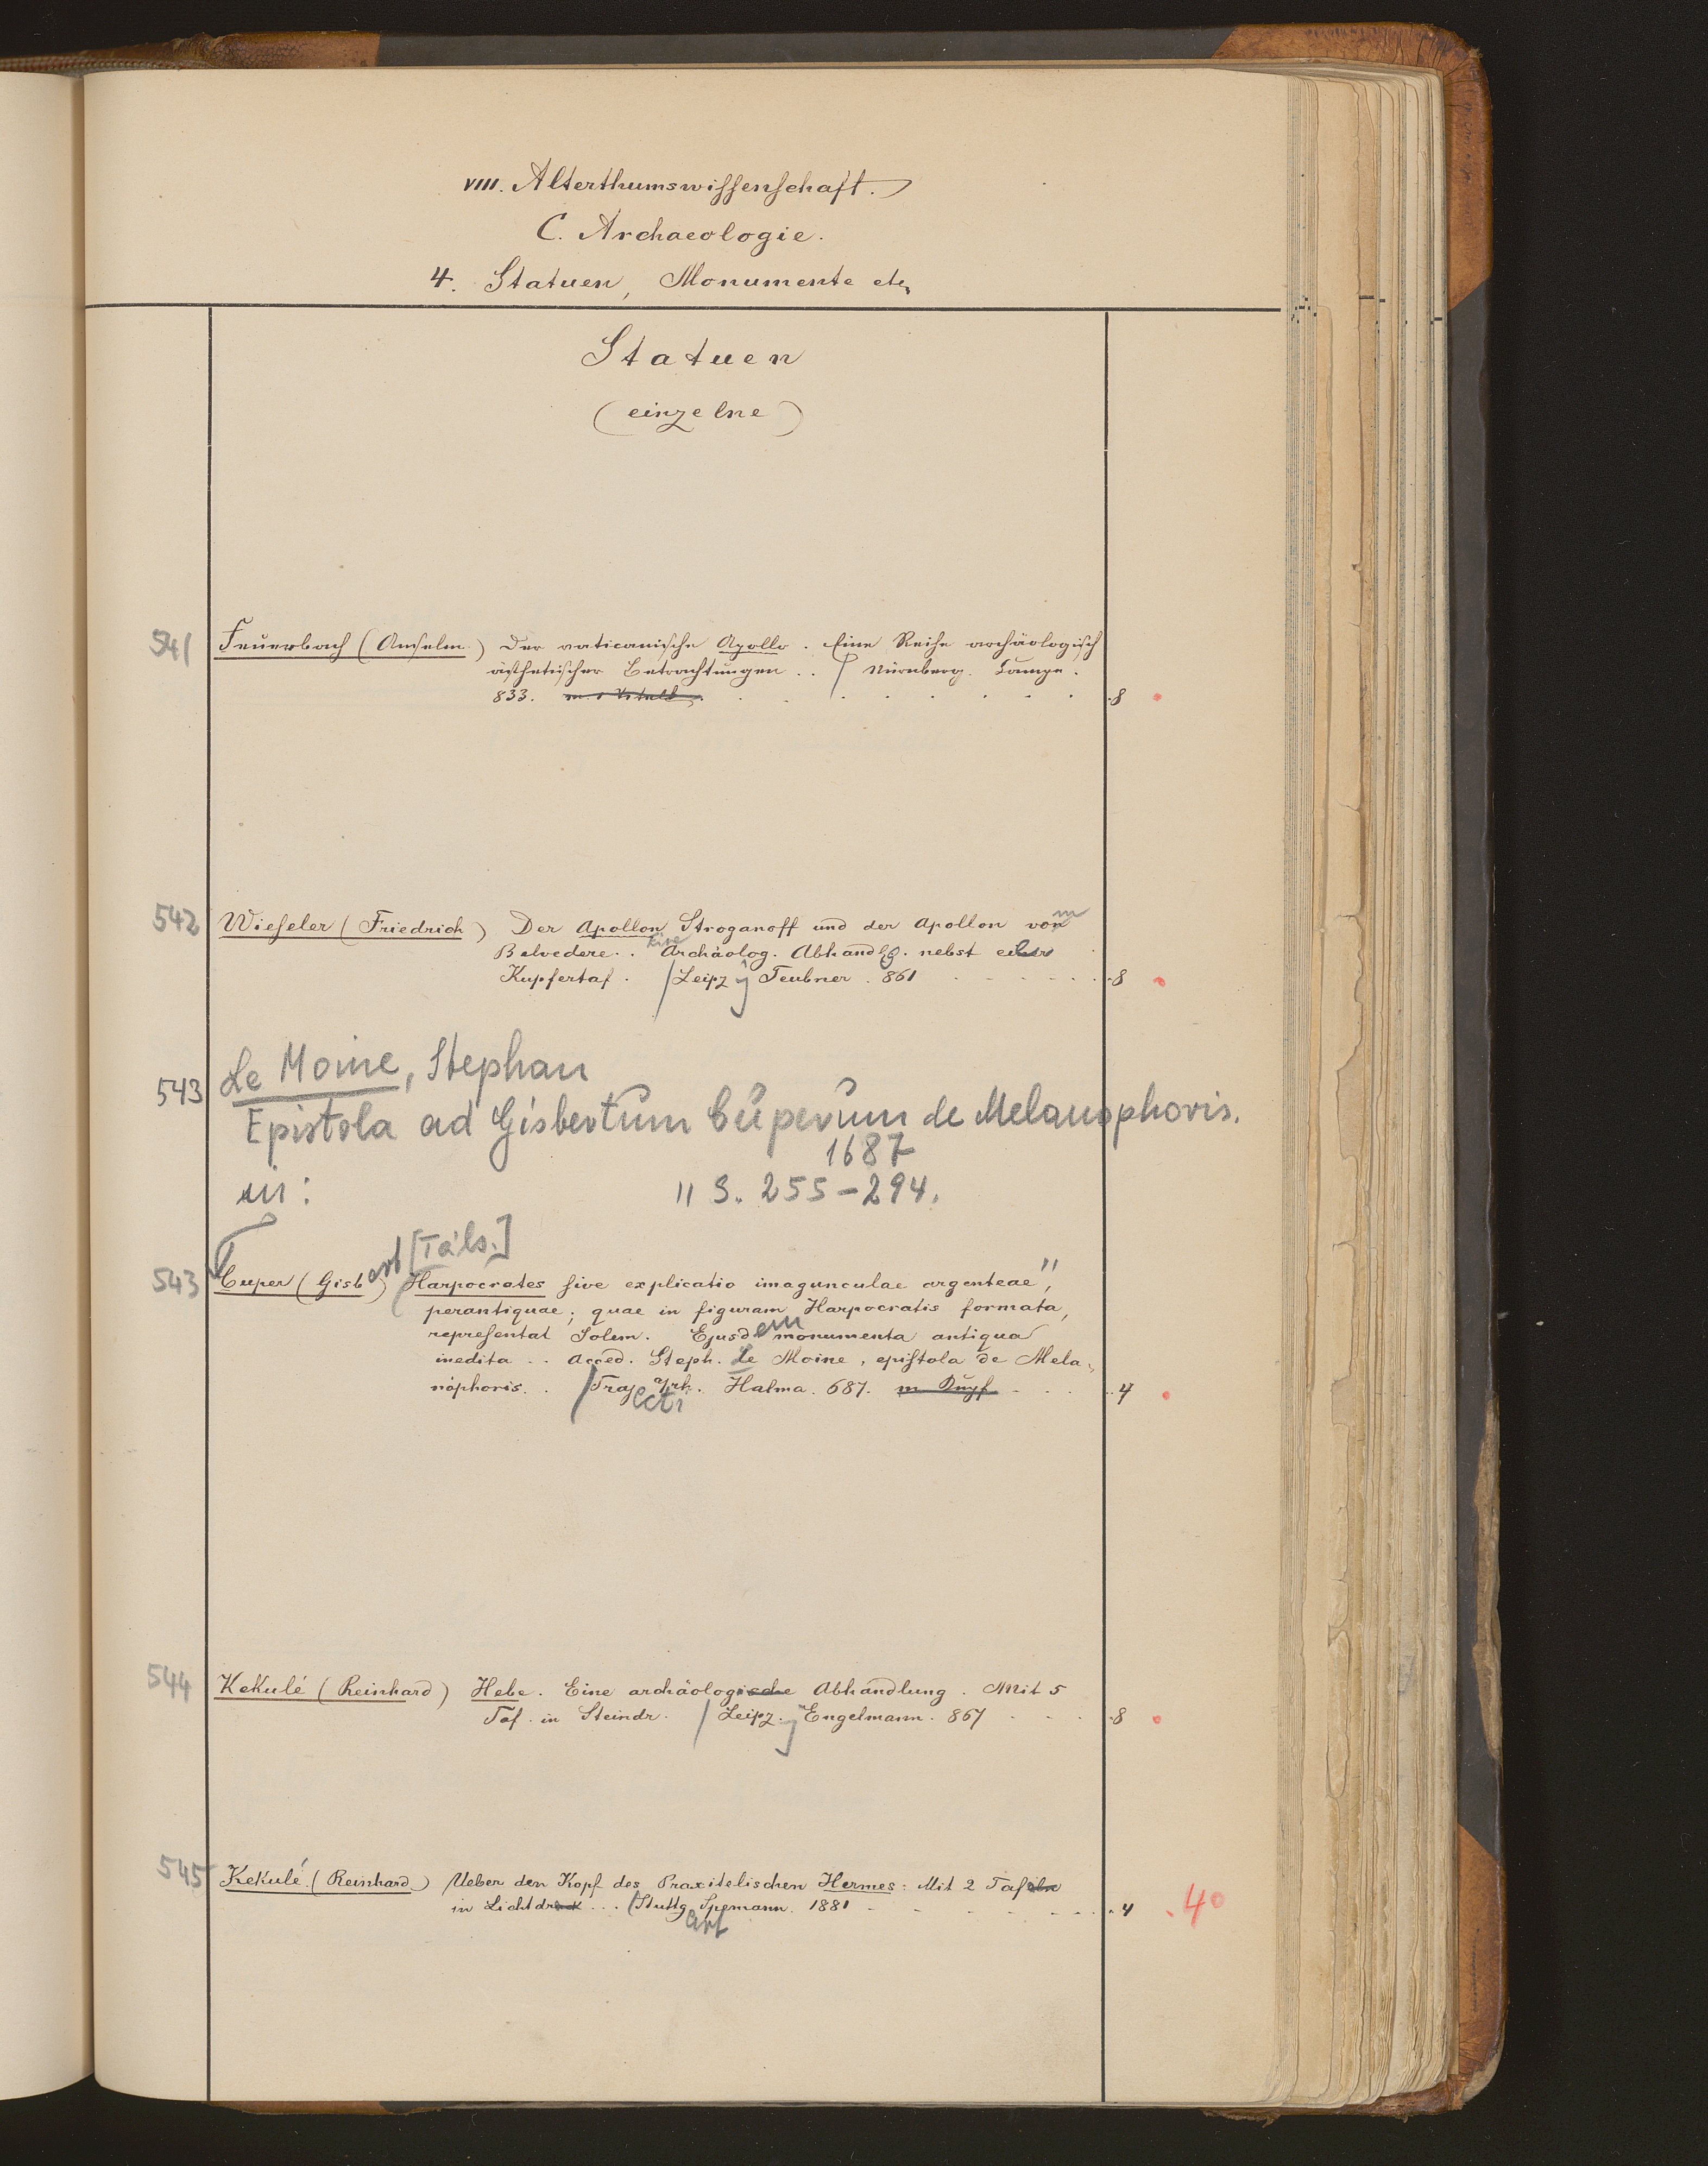 VIII. Alterthumswissenschaft.
C. Archaeologie.
4. Statuen, Monumente etc.
Statuen
(einzelne)
541 Feuerbach (Anselm.) Der vaticanische Apollo. Eine Reihe archäologisch
ästhetischer Betrachtungen .. / Nürnberg. Campe.
833. 8
542 Wieseler (Friedrich) Der Apollon Stroganoff und der Apollon vom
Belvedere .. Eine Archäolog. Abhandlg. nebst einer
Kupfertaf. / Leipzg Teubner. 861 8
543 Le Moine, Stephan
Epistola ad Gisbertum Cuperum de Melanophoris.
1687
in: 11 S. 255-294.
543 Cuper (Gisbert) [Täls.] Harpocrates sive explicatio imagunculae argenteae
perantiquae; quae in figuram Harpocratis formata,
representat Solem. Ejusdem monumenta antiqua
inedita .. Acced. Steph. Le Moine, epistola de Mela-
nophoris. . / Trajecti a/rh. Halma. 687. 4
544 Kekulé (Reinhard) Hebe. Eine archäologische Abhandlung. Mit 5
Taf. in Steindr. / Leipz.g Engelmann. 867 8
545 Kekulé (Reinhard) Ueber den Kopf des Praxitelischen Hermes: Mit 2 Tafeln
in Lichtdruck ... / Stuttgart Spemann. 1881 4 40